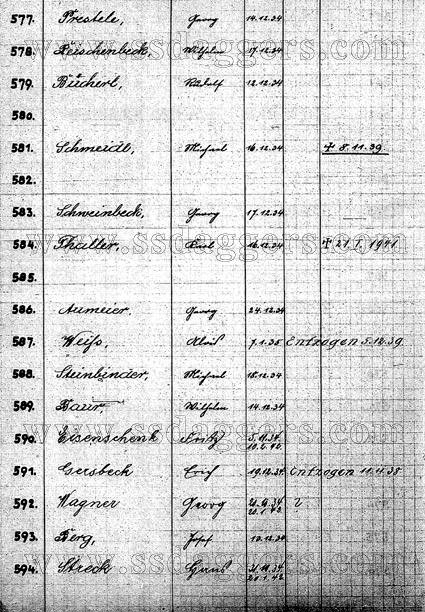 577. Prestele, Georg 14.12.34
www.ssdaggers.com
578. Reischenbeck, Wilhelm 17.12.34
579. Büchert, Rudolf 12.12.34
580.
581. Schmeidl, Michael 16.12.34 ✝ 8.11.39
582.
583. Schweinbeck, Georg 17.12.34
584. Thaller, Karl 16.12.34 ✝ 21.1.1941
www.ssdaggers.com
585.
586. Aumeier. Georg 24.12.34
587. Weiß, Alois 7.1.35 Entzogen 5.12.39
588. Steinbinder, Michael 18.12.34
589. Baur, Wilhelm 14.12.34
590. Eisenschenk Fritz 5.11.34
10.2.42.
591. Gersbeck Erich 19.12.34. Entzogen 11.4.38
592. Wagner Georg 21.9.34 ?
20.1.42.
593. Berg, Josef 10.12.34
www.ssdaggers.com
594. Streck Hans 21.11.34
20.1.42